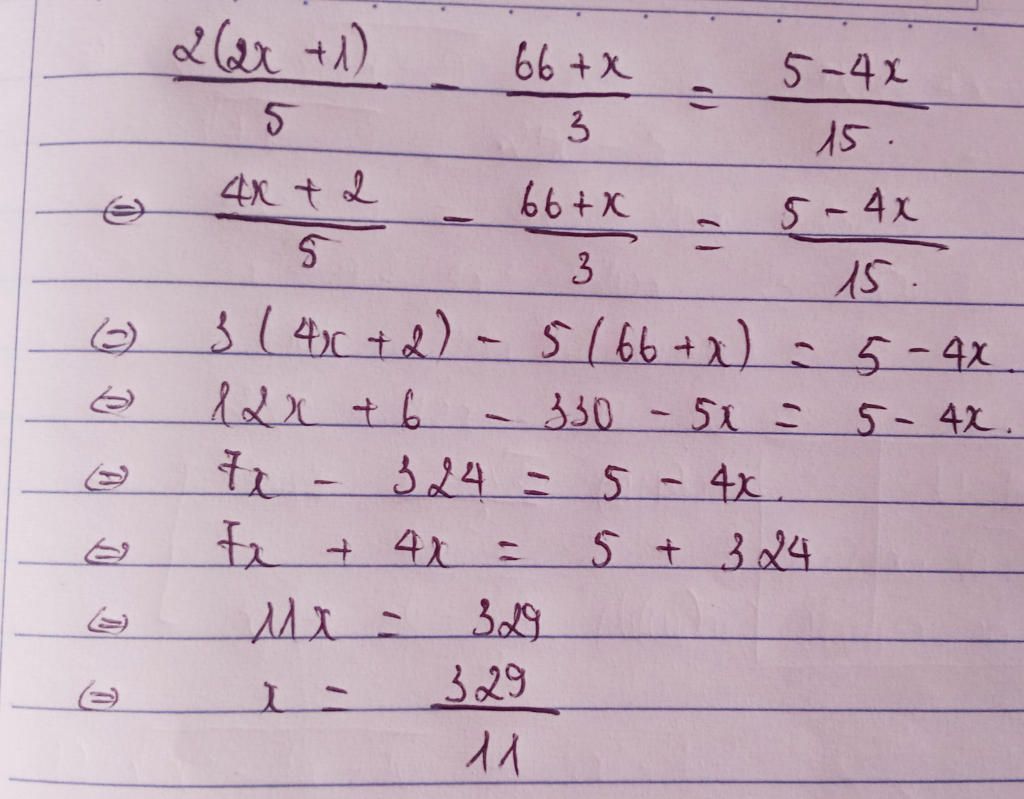 2(2x + 1)/5 - 66 + x/3 = 5 - 4x/15.
⇔ 4x + 2/5 - 66 + x/3 = 5 - 4x/15.
⇔ 3(4x + 2) - 5(66 + x) = 5 - 4x.
⇔ 12x + 6 - 330 - 5x = 5 - 4x.
⇔ 7x - 324 = 5 - 4x.
⇔ 7x + 4x = 5 + 324
⇔ 11x = 329
⇔ x = 329/11